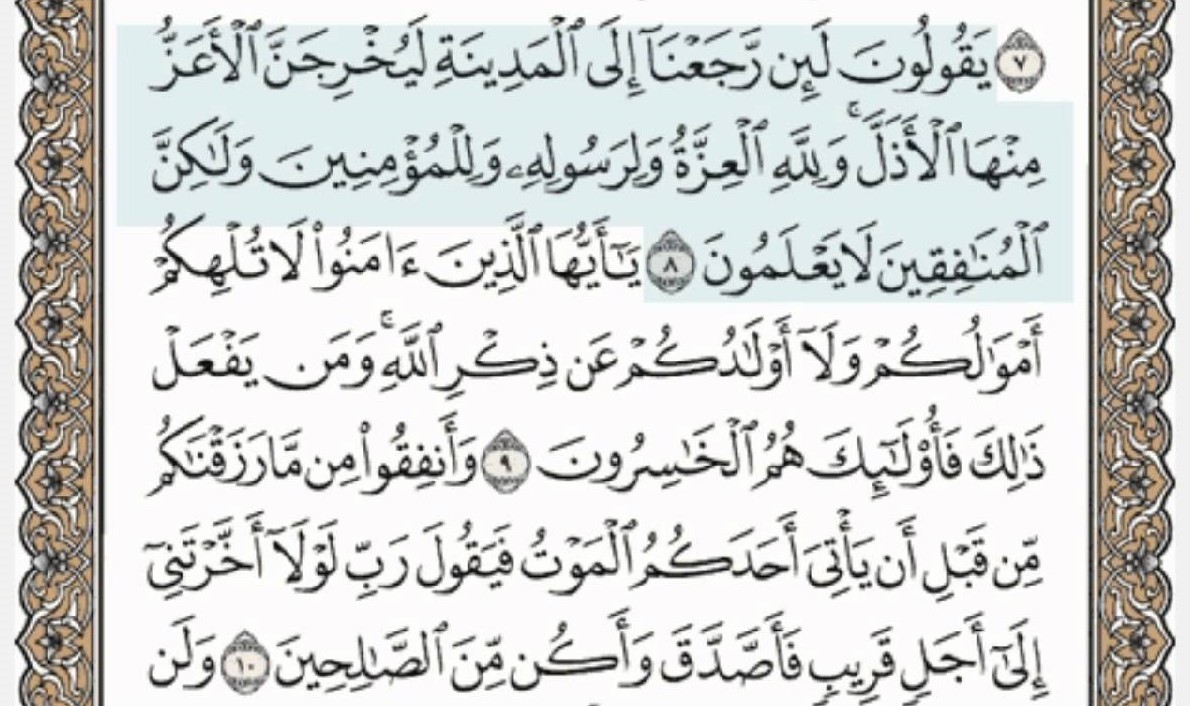 ٧ يَقُولُونَ لَئِن رَّجَعْنَآ إِلَى ٱلْمَدِينَةِ لَيُخْرِجَنَّ ٱلْأَعَزُّ
مِنْهَا ٱلْأَذَلَّ ۚ وَلِلَّهِ ٱلْعِزَّةُ وَلِرَسُولِهِۦ وَلِلْمُؤْمِنِينَ وَلَٰكِنَّ
ٱلْمُنَٰفِقِينَ لَا يَعْلَمُونَ ٨ يَٰٓأَيُّهَا ٱلَّذِينَ ءَامَنُوا۟ لَا تُلْهِكُمْ
أَمْوَٰلُكُمْ وَلَآ أَوْلَٰدُكُمْ عَن ذِكْرِ ٱللَّهِ ۚ وَمَن يَفْعَلْ
ذَٰلِكَ فَأُو۟لَٰٓئِكَ هُمُ ٱلْخَٰسِرُونَ ٩ وَأَنفِقُوا۟ مِن مَّا رَزَقْنَٰكُم
مِّن قَبْلِ أَن يَأْتِىَ أَحَدَكُمُ ٱلْمَوْتُ فَيَقُولَ رَبِّ لَوْلَآ أَخَّرْتَنِىٓ
إِلَىٰٓ أَجَلٍ قَرِيبٍ فَأَصَّدَّقَ وَأَكُن مِّنَ ٱلصَّٰلِحِينَ ١٠ وَلَن